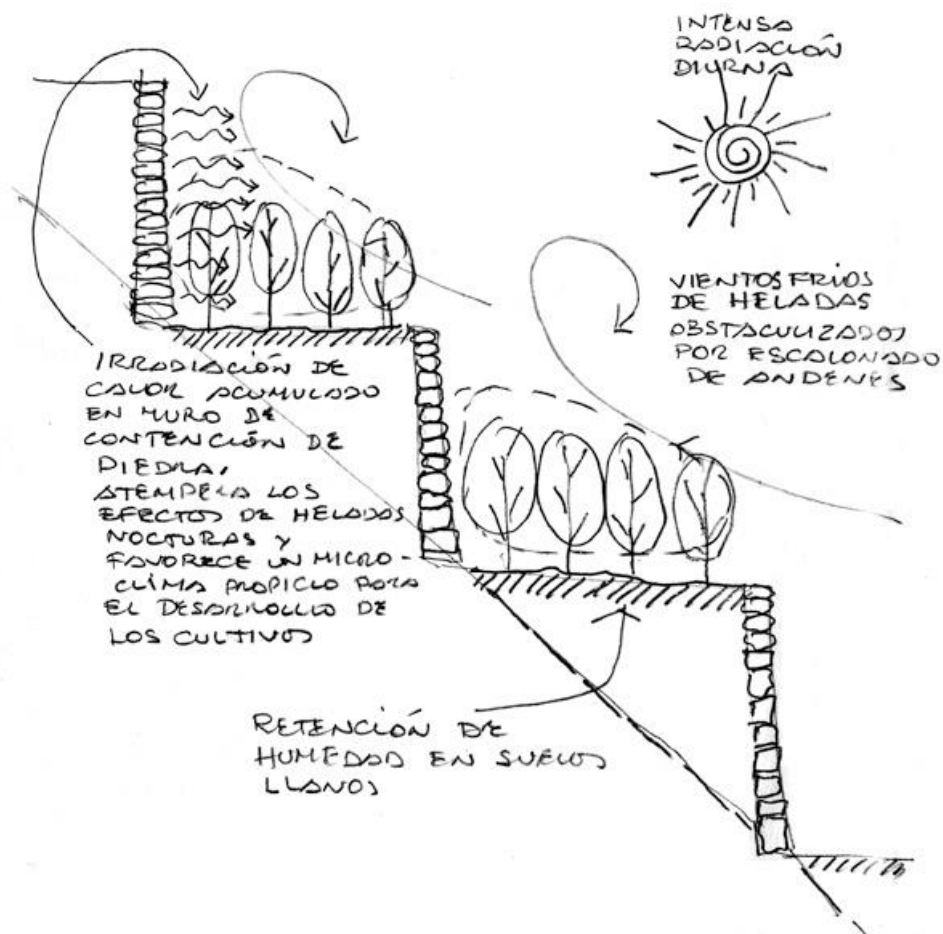 INTENSA
RADIACIÓN
DIURNA
VIENTOS FRIOS
DE HELADAS
OBSTACULIZADOS
POR ESCALONADO
DE ANDENES
IRRADIACIÓN DE
CALOR ACUMULADO
EN MURO DE
CONTENCIÓN DE
PIEDRA,
ATEMPERA LOS
EFECTOS DE HELADAS
NOCTURAS Y
FAVORECE UN MICRO-
CLIMA PROPICIO PARA
EL DESARROLLO DE
LOS CULTIVOS
RETENCIÓN DE
HUMEDAD EN SUELOS
LLANOS